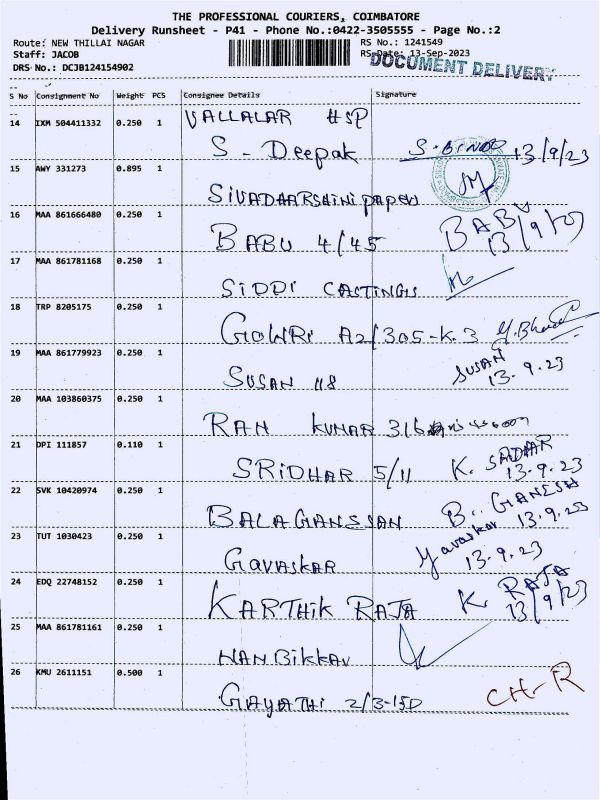 THE PROFESSIONAL COURIERS, COIMBATORE
Delivery Runsheet - P41 - Phone No.:0422-3505555 - Page No.:2
Route: NEW THILLAI NAGAR RS No.: 1241549
Staff: JACOB RS Date: 13-Sep-2023
DRS No.: DCJB124154902 DOCUMENT DELIVERY
S No Consignment No Weight PCS Consignee Details Signature
14 IXM 504411332 0.250 1 VALLALAR HSP
S - Deepak S. BINOD 13/9/23
15 AWY 331273 0.895 1
SIVADHARSHINI papers
16 MAA 861666480 0.250 1
BABU 4/45 BABU 13/9/23
17 MAA 861781168 0.250 1
SIDDI CASTINGS
18 TRP 8205175 0.250 1
GOWRI A2/305-K.3
19 MAA 861779923 0.250 1
SUSAN 118 SUSAN 13.9.23
20 MAA 103860375 0.250 1
RAM KUMAR 316
21 DPI 111857 0.110 1
SRIDHAR 5/11 K. SADHAR 13.9.23
22 SVK 10420974 0.250 1
BALAGANESSAN B. GANESH 13.9.23
23 TUT 1030423 0.250 1
Gavaskar Gavaskar 13.9.23
24 EDQ 22748152 0.250 1
KARTHIK RAJA K. RAJA 13/9/23
25 MAA 861781161 0.250 1
26 KMU 2611151 0.500 1
GAYATHI 2/3-15D CH-R